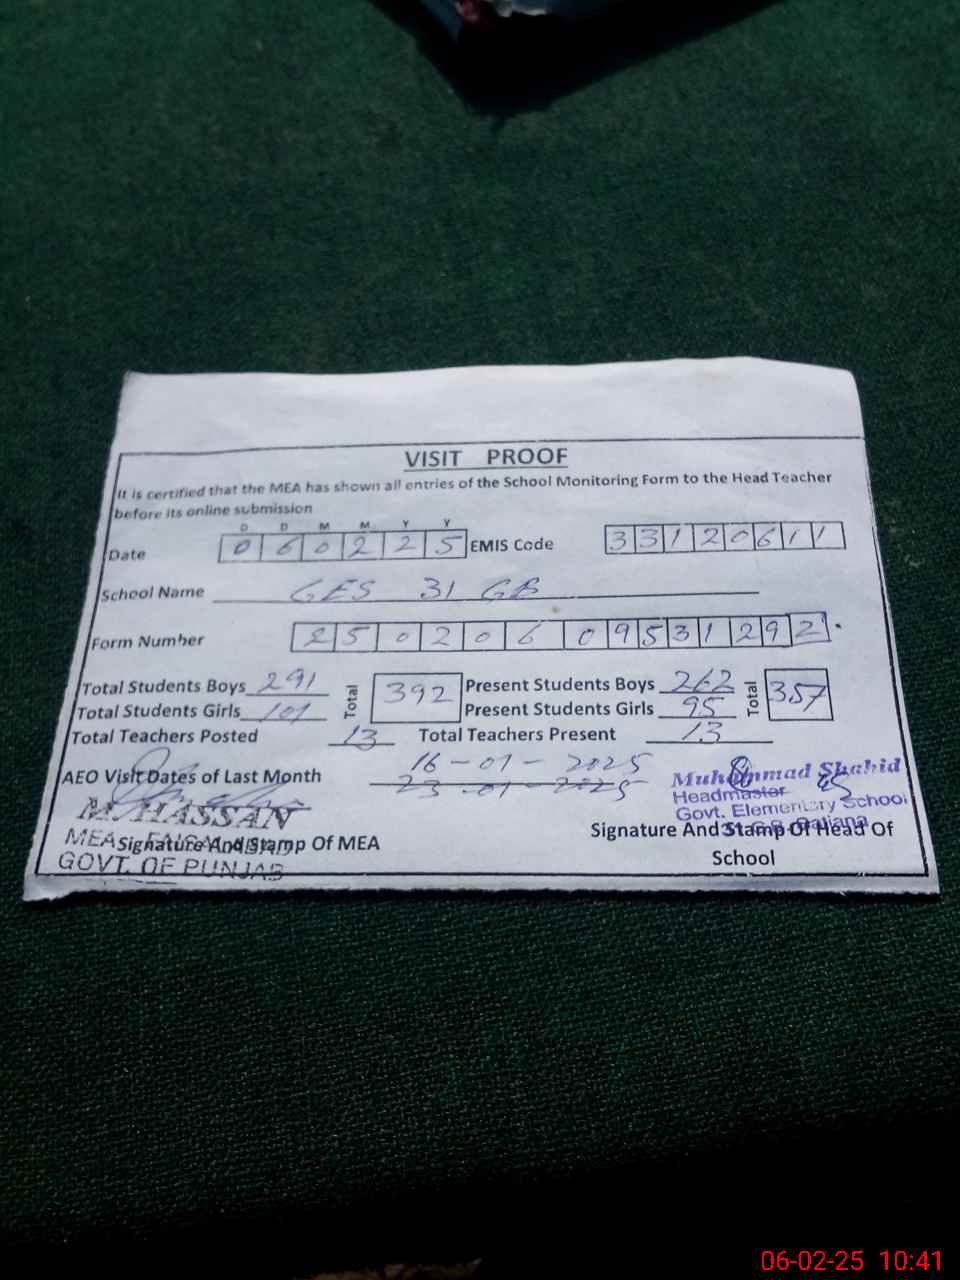 VISIT PROOF
It is certified that the MEA has shown all entries of the School Monitoring Form to the Head Teacher
before its online submission
D D M M Y Y
Date 0 6 0 2 2 5 EMIS Code 3 3 1 2 0 6 1 1
School Name GES 31 GB
Form Number 2 5 0 2 0 6 0 9 5 3 1 2 9 2
Total Students Boys 291 Total 392 Present Students Boys 262 Total 357
Total Students Girls 101 Present Students Girls 95
Total Teachers Posted 13 Total Teachers Present 13
AEO Visit Dates of Last Month 16-01-2025
23-01-2025
Muhammad Shahid
Headmaster
Govt. Elementary School
M. HASSAN
MEA
Signature And Stamp Of MEA
GOVT. OF PUNJAB
Signature And Stamp Of Head Of
School
06-02-25 10:41